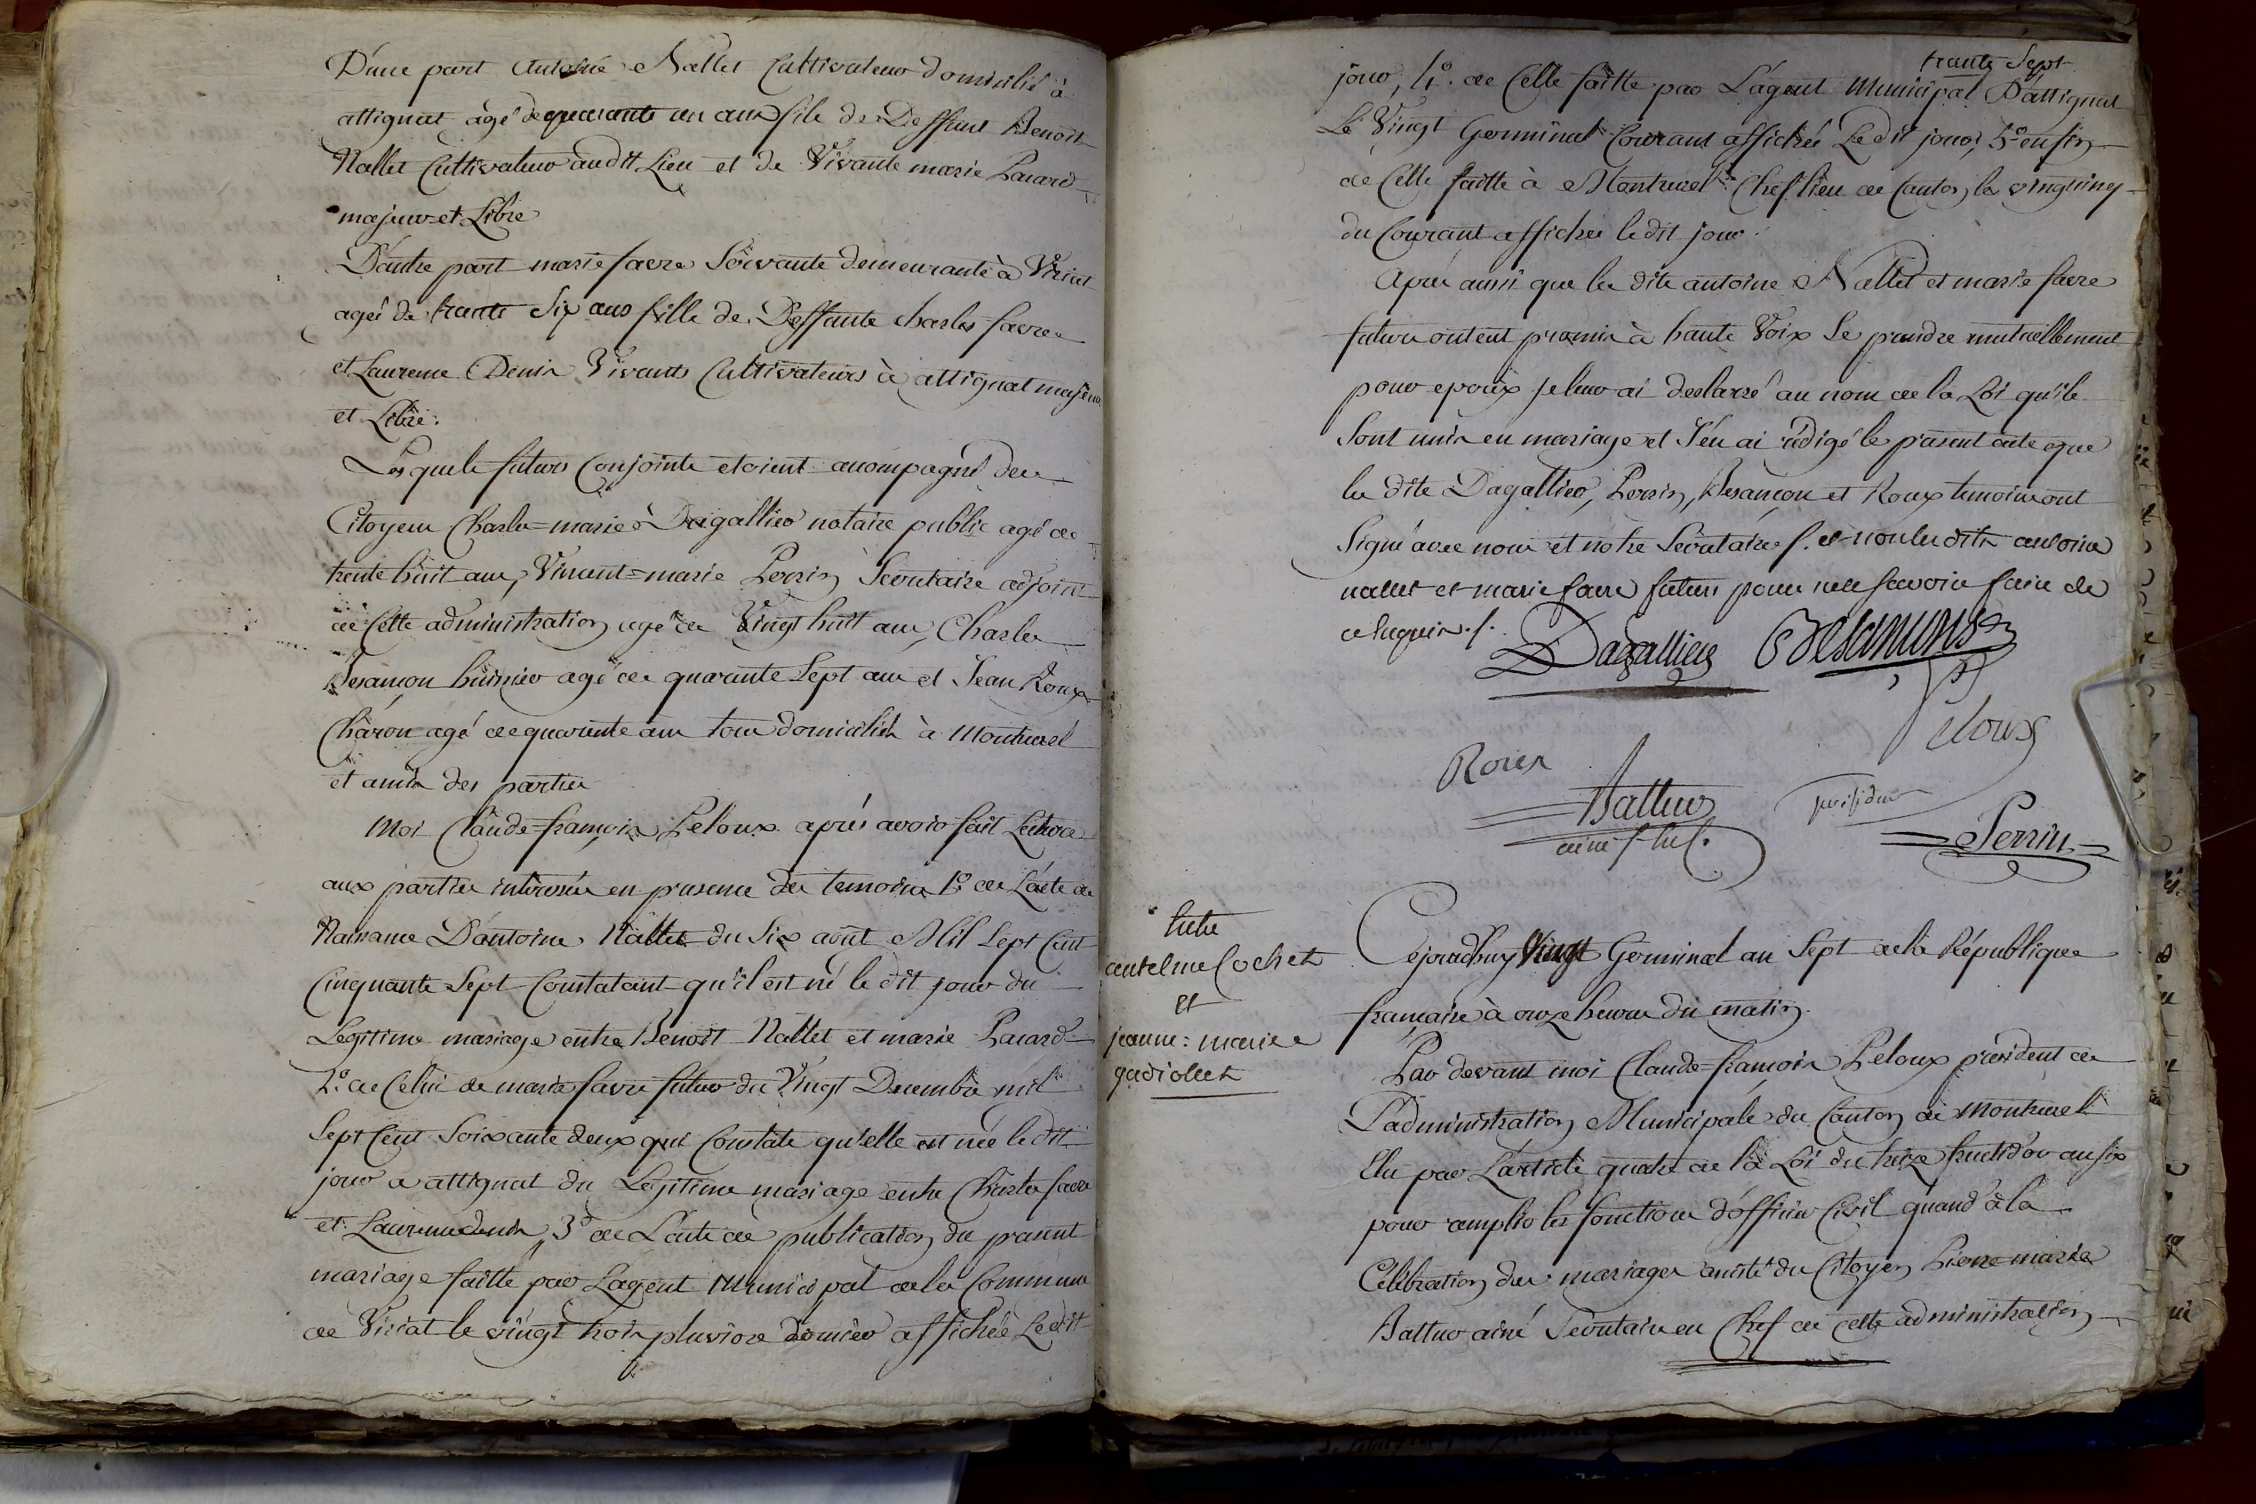 D'une part Antoine Nallet Cultivateur domicilié à
attignat agé de quarante un ans fils de Deffunt Benoit
Nallet Cultivateur audit Lieu et de Vivante marie Pacard
majeur et Libre
D'autre part marie favre Servante demeurante à Viriat
agée de trante Six ans fille de Deffunte Charles favre
et Laurence Denis Vivants Cultivateurs à attignat majeure
et Libre.
Les quels futurs Conjoints etoient accompagné des
Citoyens Charles=marie Dagallier notaire public agé de
trente huit ans, Vincent=marie Perrin Secretaire adjoint
de Cette administration agé de Vingt huit ans, Charles
Besançon huissier agé de quarante Sept ans et Jean Roux
Charon agé de quarante ans tous domiciliés à Montrevel
et amis des parties
Moi Claude=françois Peloux après avoir fait Lecture
aux parties intéressées en présence des temoins 1º. de L'acte de
Naissance D'antoine Nallet du Six août Mil Sept Cent
Cinquante Sept Constatant qu'il est né le dit jour du
Legitime mariage entre Benoit Nallet et marie Pacard
2º. de Celui de marie favre futur du Vingt Decembre mil
Sept Cent Soixante deux qui Constate qu'elle est née le dit
jour a attignat du Legitime mariage entre Charles favre
et Laurence denis, 3º de L'acte de publication du present
mariage faitte par Lagent Municipal de la Commune
de Viriat le vingt trois pluviose dernier affichée Le dit
trante Sept
jour, 4º. de Celle faitte par L'agent Municipal D'attignat
Le Vingt Germinal Courant affichée Le dit jour, 5º enfin
de Celle faitte à Montrevel Chef lieu de Canton le vingt cinq
du Courant affichée le dit jour.
Après aussi que les dits antoine Nallet et marie favre
futurs ont eut promis à haute Voix Se prendre mutuellement
pour epoux je leur ai declaré au nom de la Loi qu'ils
Sont unis en mariage et J'en ai rédigé le présent acte que
les dits Dagallier, Perrin, Besançon et Roux temoins ont
Signé avec nous et notre Secretaire /. et non les dits antoine
nallet et marie favre futurs pour ne le Savoir faire de
ce enquis./.
Dagallier Besançon
Peloux
Roux
Battur président
ainé Perrin
Entre
antelme Cochet
et
jeanne=marie
gadiollet
Cejourdhuy Vingt Germinal an Sept de la République
française à onze heures du matin.
Par devant moi Claude=françois Peloux président de
L'administration Municipale du Canton de Montrevel
Elu par L'article quatre de la Loi du treize fructidor an six
pour remplir les fonctions d'officier Civil quand à la
Célébration des mariages assisté du Citoyen Pierre marie
Battur ainé Secretaire en Chef de cette administration